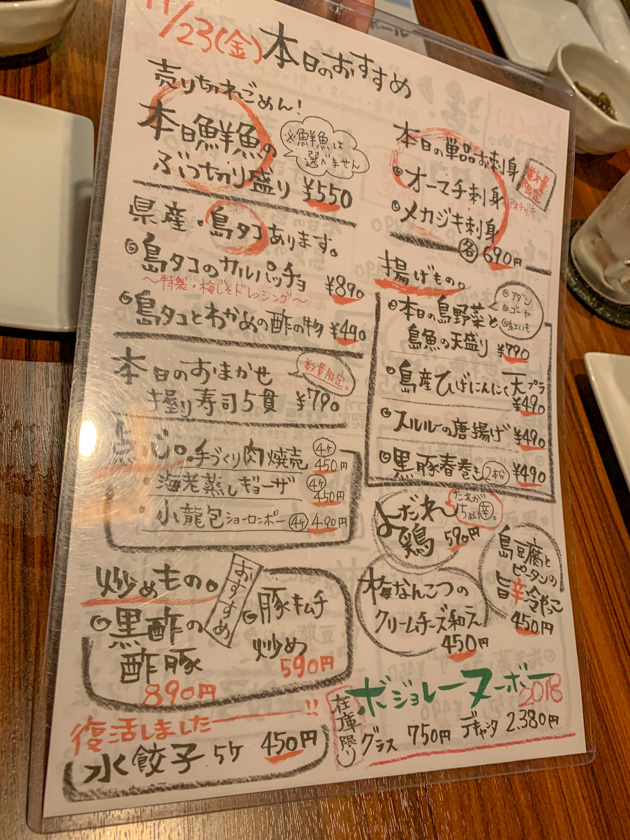 11/23(金) 本日のおすすめ
売りちれごめん!
本日鮮魚の
ぶつ切り盛り ¥550
※鮮魚は
選べません
県産・島タコあります。
島タコのカルパッチョ
¥890
〜特製・梅じそドレッシング〜
島タコとわかめの酢の物 ¥490
本日のおまかせ
握り寿司5貫 ¥790
数量限定。
点心。手づくり肉焼売 4ヶ 450円
海老蒸しギョーザ 4ヶ 450円
小龍包ショーロンポー 4ヶ 490円
炒めもの。
おすすめ
黒酢の
酢豚
890円
豚キムチ
炒め
590円
復活しました!!
水餃子 5ケ 450円
本日の単品お刺身
オーマチ刺身
メカジキ刺身
各690円
揚げもの。
本日の島野菜と
島魚の天盛り ¥790
島産ひげにんにく天プラ
¥490
スルルーの唐揚げ ¥490
黒豚春巻き 2本 ¥490
よだれ
鶏 590円
島豆腐と
ピータンの
旨辛冷やっこ
450円
梅なんこつの
クリームチーズ和え
450円
ボジョレーヌーボー
2018
在庫限り
グラス 750円 デキャンタ 2.380円